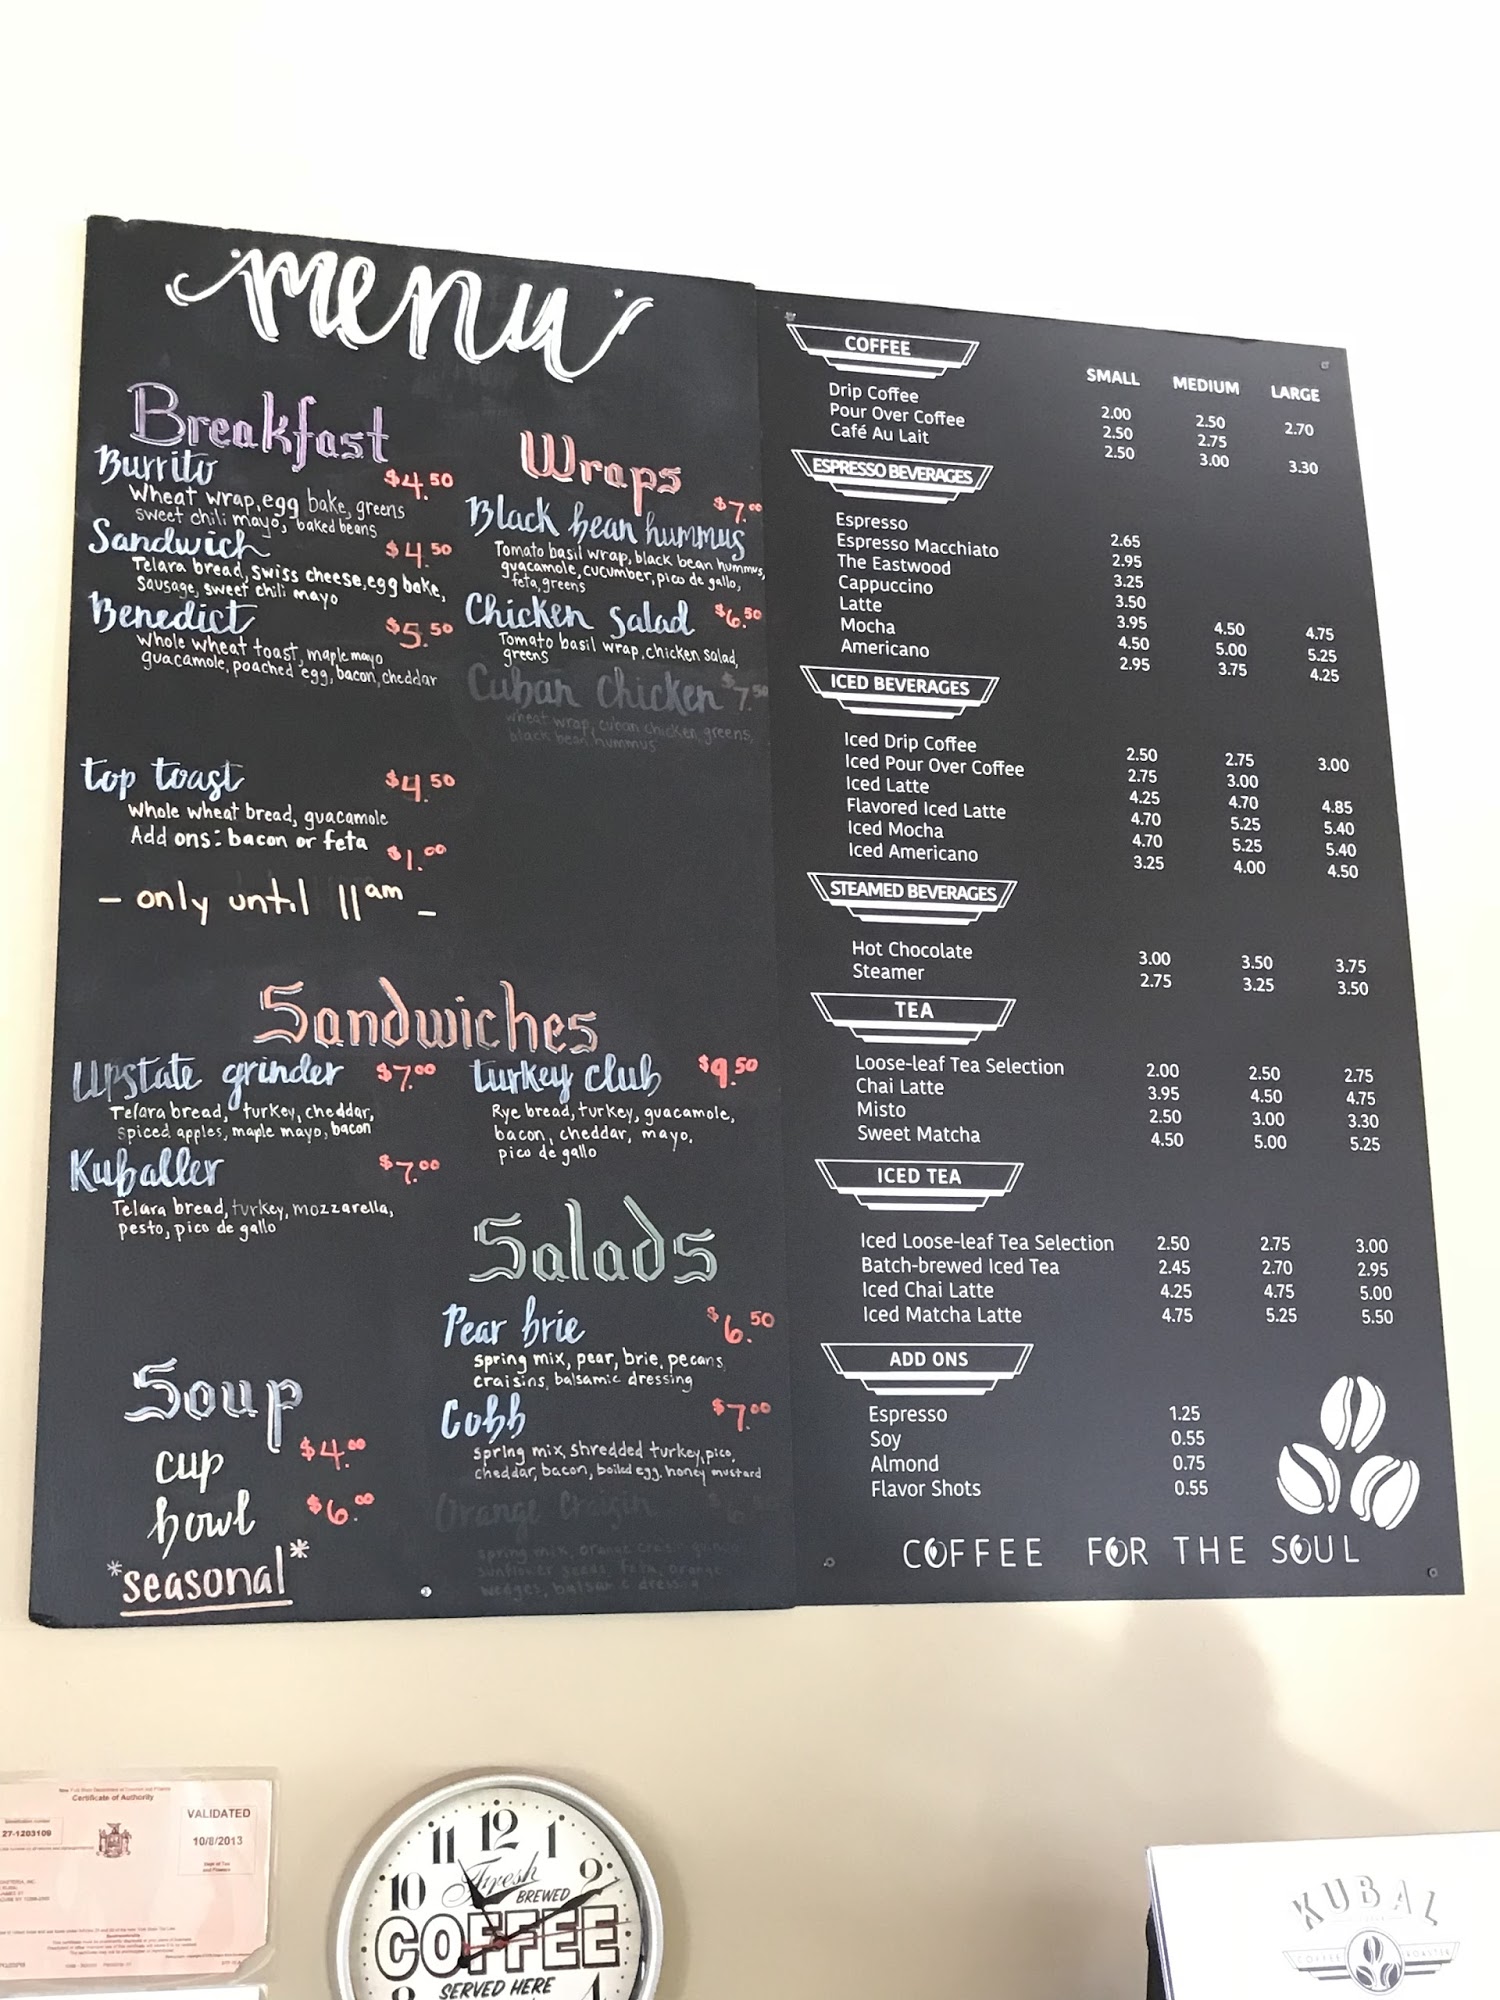 menu
Breakfast
Burrito $4.50
Wheat wrap, egg bake, greens
sweet chili mayo, baked beans
Sandwich $4.50
Telara bread, swiss cheese, egg bake,
Sausage, sweet chili mayo
Benedict $5.50
Whole wheat toast, maple mayo
guacamole, poached egg, bacon, cheddar
top toast $4.50
Whole wheat bread, guacamole
Add ons: bacon or feta $1.00
- only until 11am -
Wraps
Black bean hummus $7.00
Tomato basil wrap, black bean hummus,
guacamole, cucumber, pico de gallo,
feta, greens
Chicken salad $6.50
Tomato basil wrap, chicken salad,
greens
Cuban chicken $7.50
wheat wrap, cuban chicken, greens,
black bean hummus
Sandwiches
Upstate grinder $7.00
Telara bread, turkey, cheddar,
spiced apples, maple mayo, bacon
Kuballer $7.00
Telara bread, turkey, mozzarella,
pesto, pico de gallo
turkey club $9.50
Rye bread, turkey, guacamole,
bacon, cheddar, mayo,
pico de gallo
Soup
cup $4.00
bowl $6.00
*seasonal*
Salads
Pear brie $6.50
spring mix, pear, brie, pecans,
craisins, balsamic dressing
Cobb $7.00
spring mix, shredded turkey, pico,
cheddar, bacon, boiled egg, honey mustard
Orange Craisin
spring mix, orange
sunflower seeds, feta, orange
wedges, balsamic dressing
COFFEE
SMALL MEDIUM LARGE
Drip Coffee 2.00 2.50 2.70
Pour Over Coffee 2.50 2.75
Café Au Lait 2.50 3.00 3.30
ESPRESSO BEVERAGES
Espresso 2.65
Espresso Macchiato 2.95
The Eastwood 3.25
Cappuccino 3.50
Latte 3.95 4.50 4.75
Mocha 4.50 5.00 5.25
Americano 2.95 3.75 4.25
ICED BEVERAGES
Iced Drip Coffee 2.50 2.75 3.00
Iced Pour Over Coffee 2.75 3.00
Iced Latte 4.25 4.70 4.85
Flavored Iced Latte 4.70 5.25 5.40
Iced Mocha 4.70 5.25 5.40
Iced Americano 3.25 4.00 4.50
STEAMED BEVERAGES
Hot Chocolate 3.00 3.50 3.75
Steamer 2.75 3.25 3.50
TEA
Loose-leaf Tea Selection 2.00 2.50 2.75
Chai Latte 3.95 4.50 4.75
Misto 2.50 3.00 3.30
Sweet Matcha 4.50 5.00 5.25
ICED TEA
Iced Loose-leaf Tea Selection 2.50 2.75 3.00
Batch-brewed Iced Tea 2.45 2.70 2.95
Iced Chai Latte 4.25 4.75 5.00
Iced Matcha Latte 4.75 5.25 5.50
ADD ONS
Espresso 1.25
Soy 0.55
Almond 0.75
Flavor Shots 0.55
COFFEE FOR THE SOUL
Certificate of Authority
27-1203109
VALIDATED
10/8/2013
10 11 12 1 2
Fresh
BREWED
COFFEE
SERVED HERE
KUBAL
COFFEE ROASTER